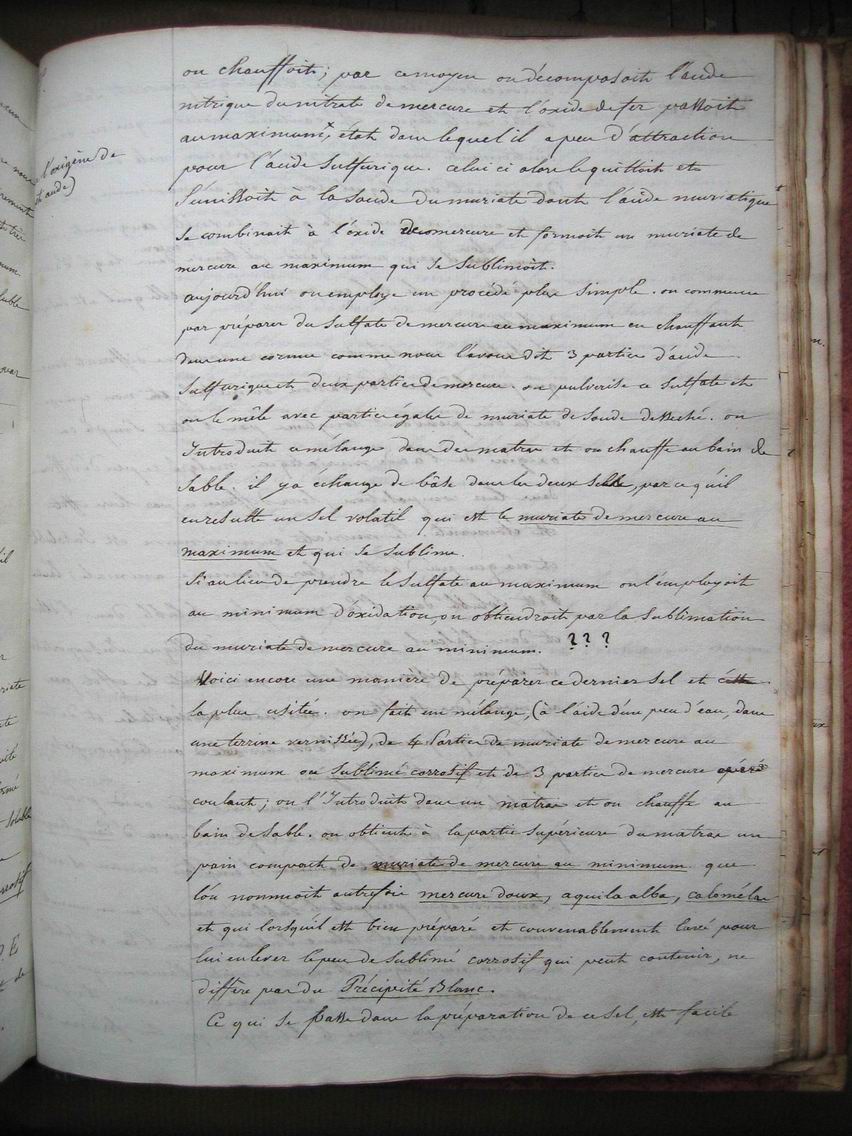 on chauffoit; par ce moyen on décomposoit l'acide
nitrique du nitrate de mercure et l'oxide de fer passoit
au maximum, état dans lequel il a peu d'attraction
l'oxigène de
acide)
pour l'acide sulfurique. celui ci alors le quittoit et
s'unissoit à la soude du muriate dont l'acide muriatique
se combinait à l'oxide de mercure et formoit un muriate de
mercure au maximum qui se sublimoit.
aujourd'hui on employe un procédé plus simple. on commence
par préparer du sulfate de mercure au maximum en chauffant
dans une cornue comme nous l'avons dit 3 parties d'acide
sulfurique et deux parties de mercure. on pulverise ce sulfate et
on le mêle avec partie égale de muriate de soude desseché. on
Introduit ce mélange dans des matras et on chauffe au bain de
sable. il y a echange de base dans les deux sels, parce qu'il
en resulte un sel volatil qui est le muriate de mercure au
maximum et qui se sublime.
Si au lieu de prendre le sulfate au maximum on l'employoit
au minimum d'oxidation, on obtiendroit par la sublimation
du muriate de mercure au minimum. ? ? ?
Voici encore une manière de préparer ce dernier sel et
la plus usitée. on fait un mélange, (à l'aide d'un peu d'eau, dans
une terrine vernissée), de 4 parties de muriate de mercure au
maximum ou sublimé corrosif et de 3 parties de mercure
coulant; on l'Introduit dans un matras et on chauffe au
bain de sable. on obtient à la partie supérieure du matras un
pain compact de muriate de mercure au minimum que
l'on nommoit autrefois mercure doux, aquila alba, calomélas
et qui lorsqu'il est bien préparé et convenablement lavé pour
lui enlever le peu de sublimé corrosif qui peut contenir, ne
diffère pas du Précipité Blanc.
Ce qui se passe dans la préparation de ce sel, est facile